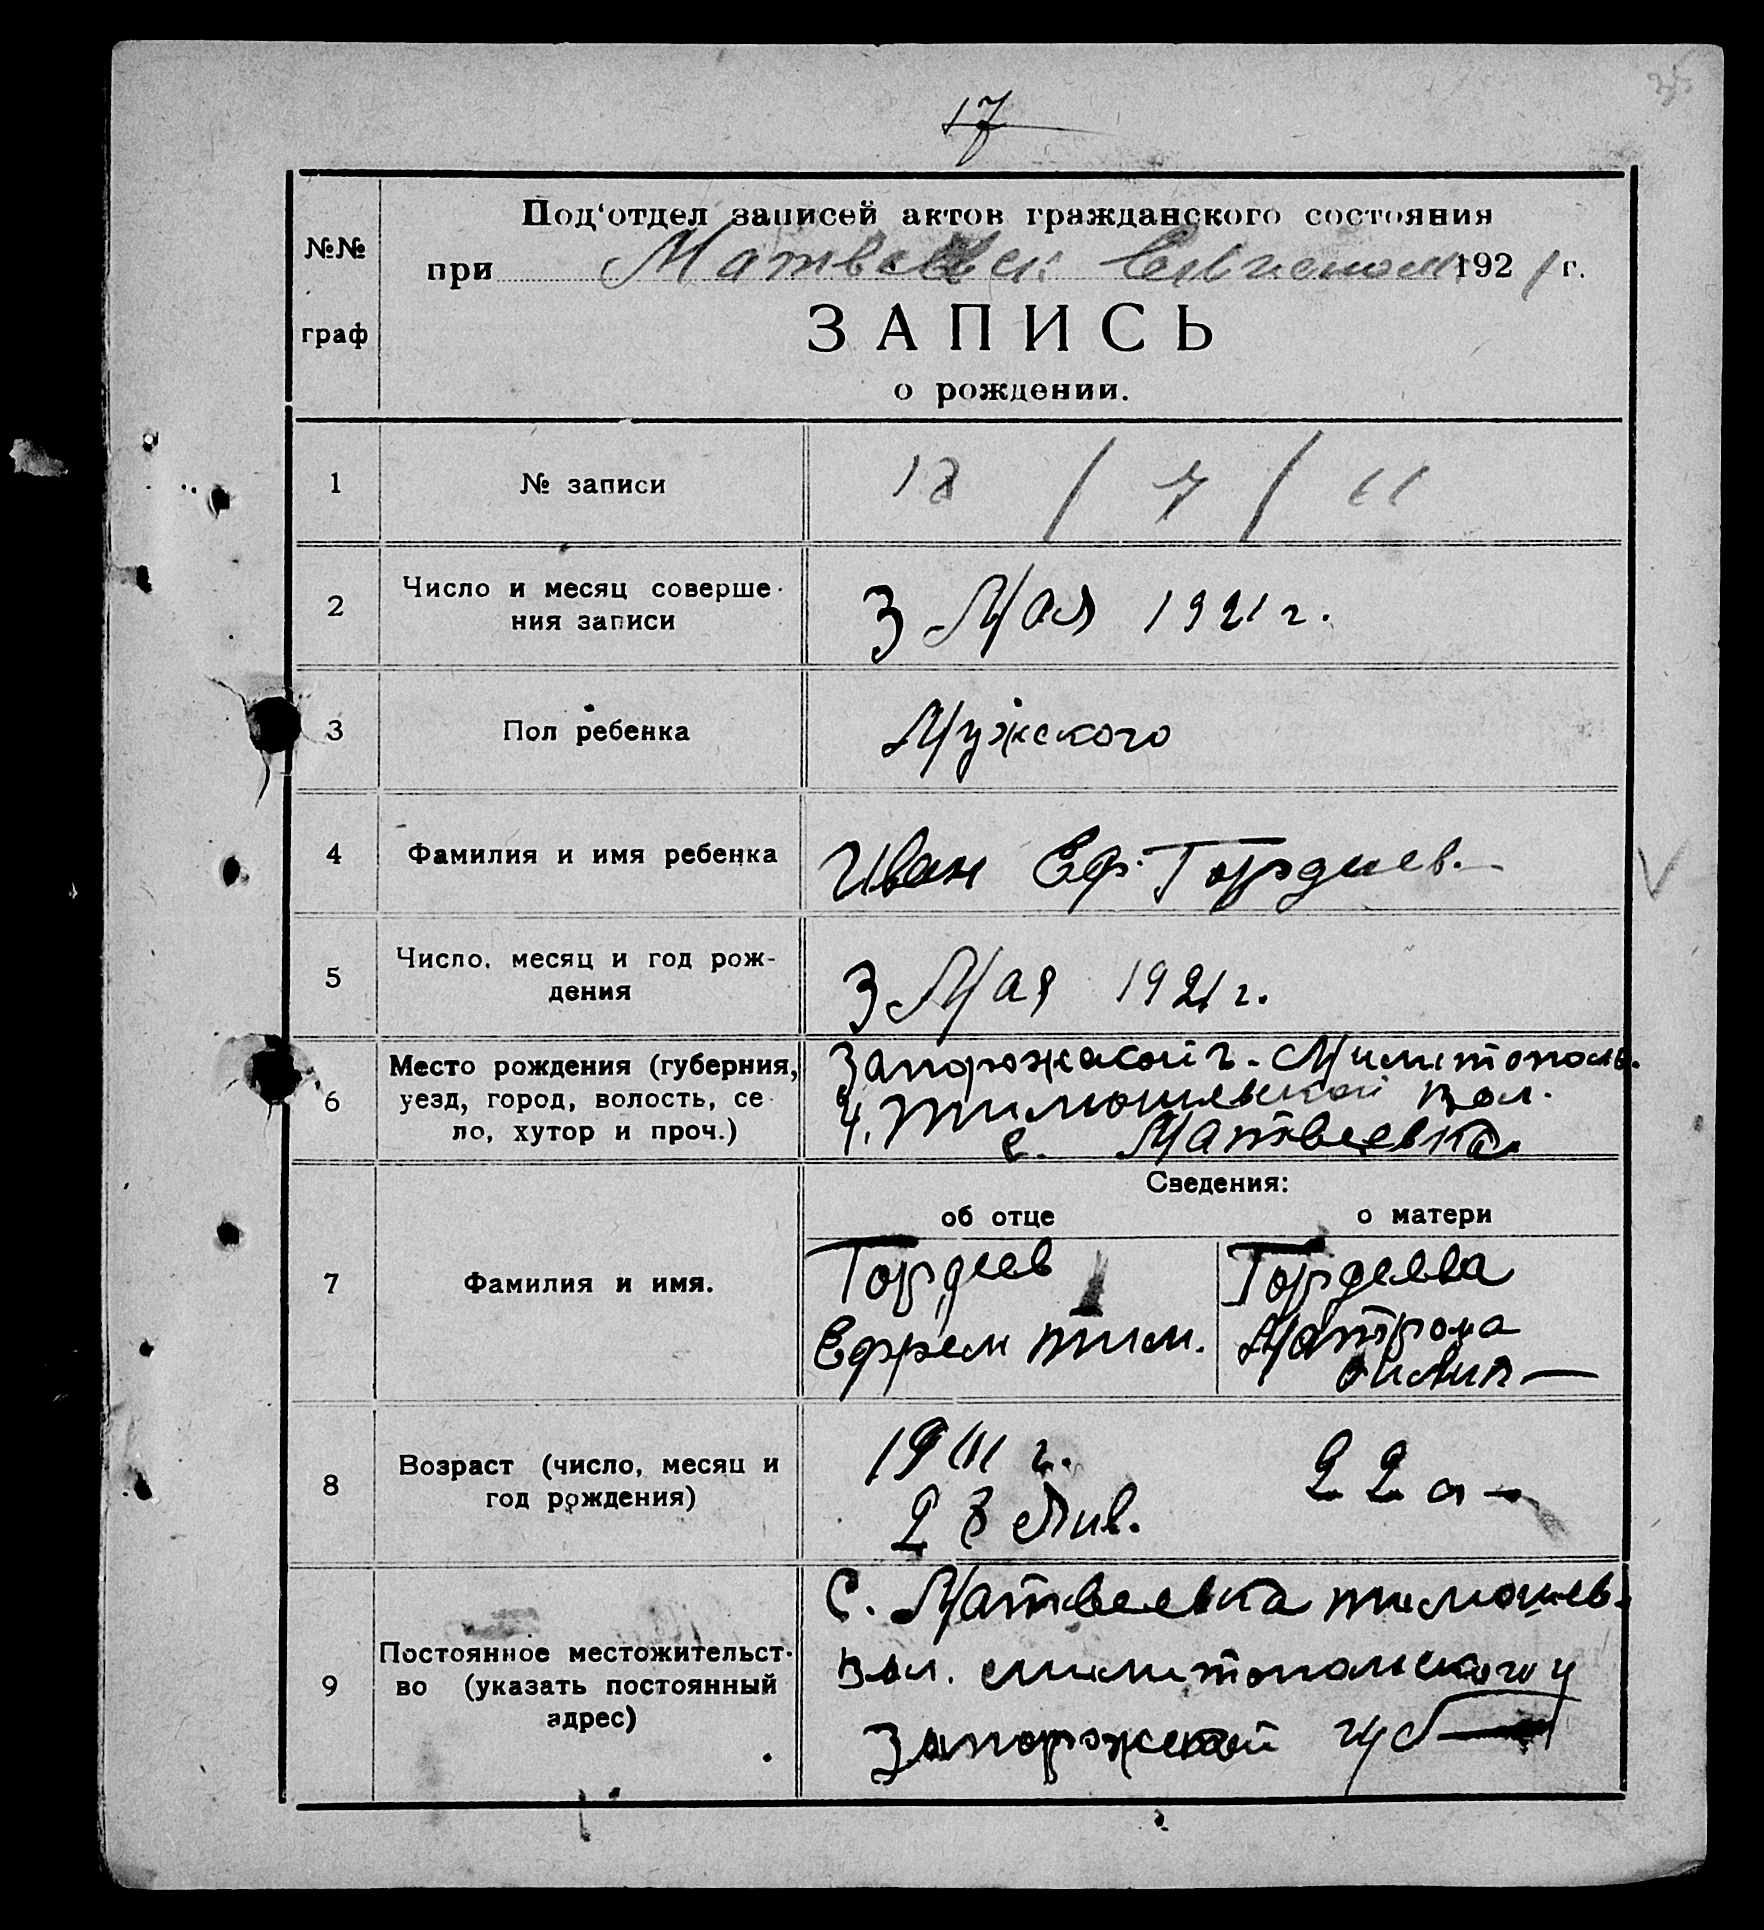 17
Под‘отдел записей актов гражданского состояния
№№
при 192 1 г.
граф
ЗАПИСЬ
о рождении.
1 № записи 18 / 7 / 11
2 Число и месяц соверше-
ния записи
3 Мая 1921 г.
3 Пол ребенка Мужского
4 Фамилия и имя ребенка Иван Еф. Гордиев.
5 Число, месяц и год рож-
дения
3 Мая 1921 г.
6 Место рождения (губерния,
уезд, город, волость, се-
ло, хутор и проч.)
Запорожской г. Милитополь.
у. Тимошевской вол.
с. Матвеевка
Сведения:
об отце о матери
7 Фамилия и имя.
Гордеев
Ефрем Тим.
Гордеева
Матрона
8 Возраст (число, месяц и
год рождения)
28 Янв.
22
9 Постоянное местожительст-
во (указать постоянный
адрес)
С. Матвеевка Тимошев.
вол. Милитопольского у
Запорожской губ